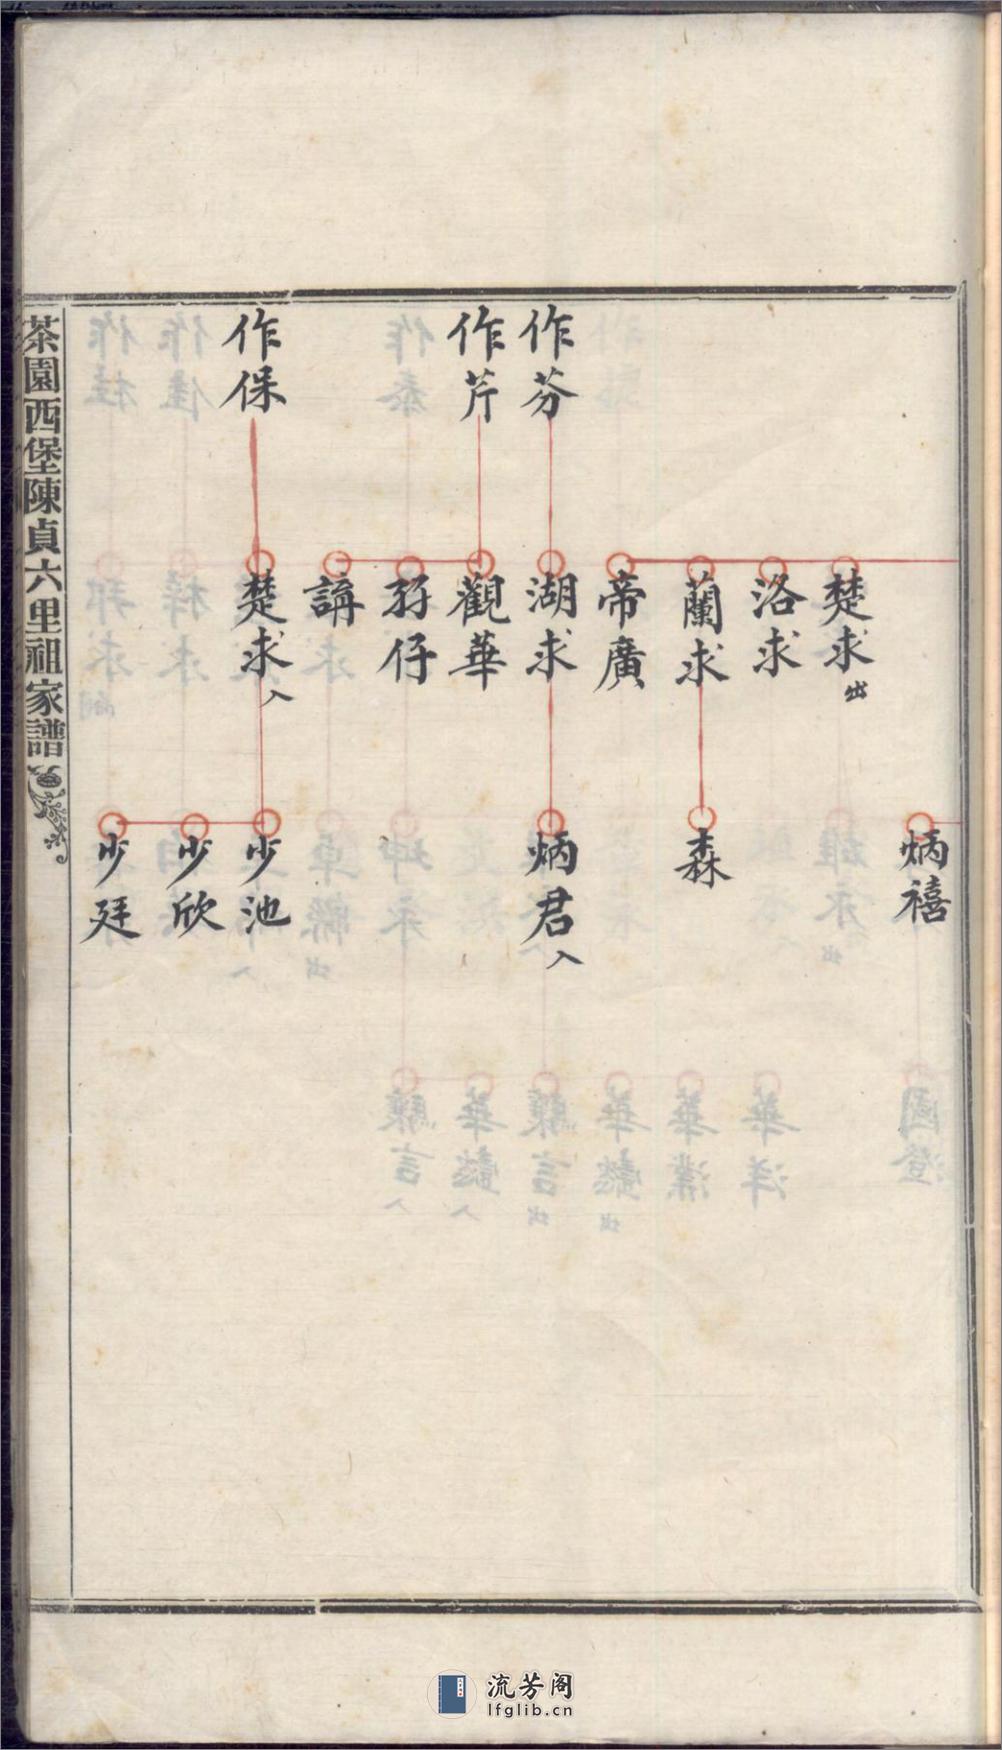 作芬
作芹
作保
楚求出
洛求
蘭求
帝廣
湖求
觀華
孖仔
楚求入
炳禧
森
炳君入
少池
少欣
少廷
茶園西堡陳貞六里祖家譜
流芳阁
lfglib.cn